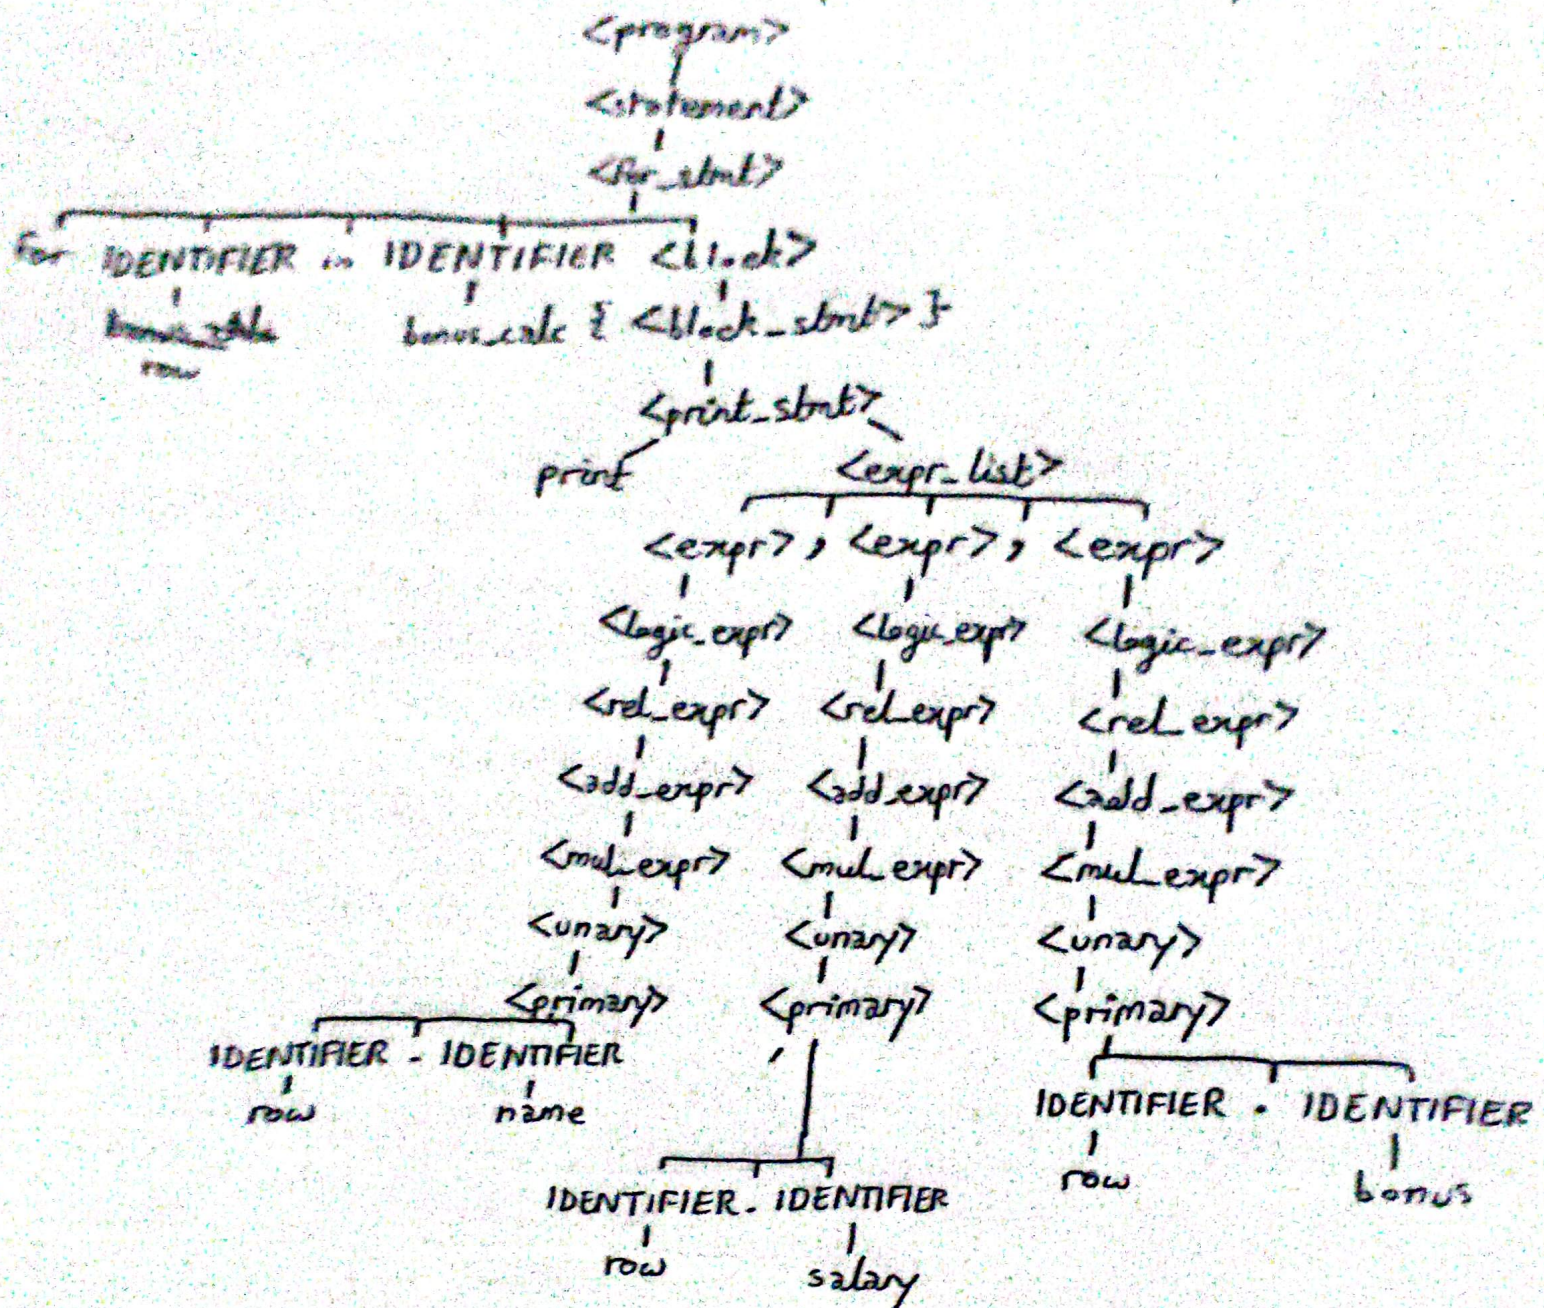 <program>
<statement>
<for_stmt>
for IDENTIFIER in IDENTIFIER <block>
bonus_calc { <block_stmt> }
row
<print_stmt>
print <expr_list>
<expr> , <expr> , <expr>
<logic_expr> <logic_expr> <logic_expr>
<rel_expr> <rel_expr> <rel_expr>
<add_expr> <add_expr> <add_expr>
<mul_expr> <mul_expr> <mul_expr>
<unary> <unary> <unary>
<primary> <primary> <primary>
IDENTIFIER . IDENTIFIER
row name
IDENTIFIER . IDENTIFIER
row bonus
IDENTIFIER . IDENTIFIER
row salary